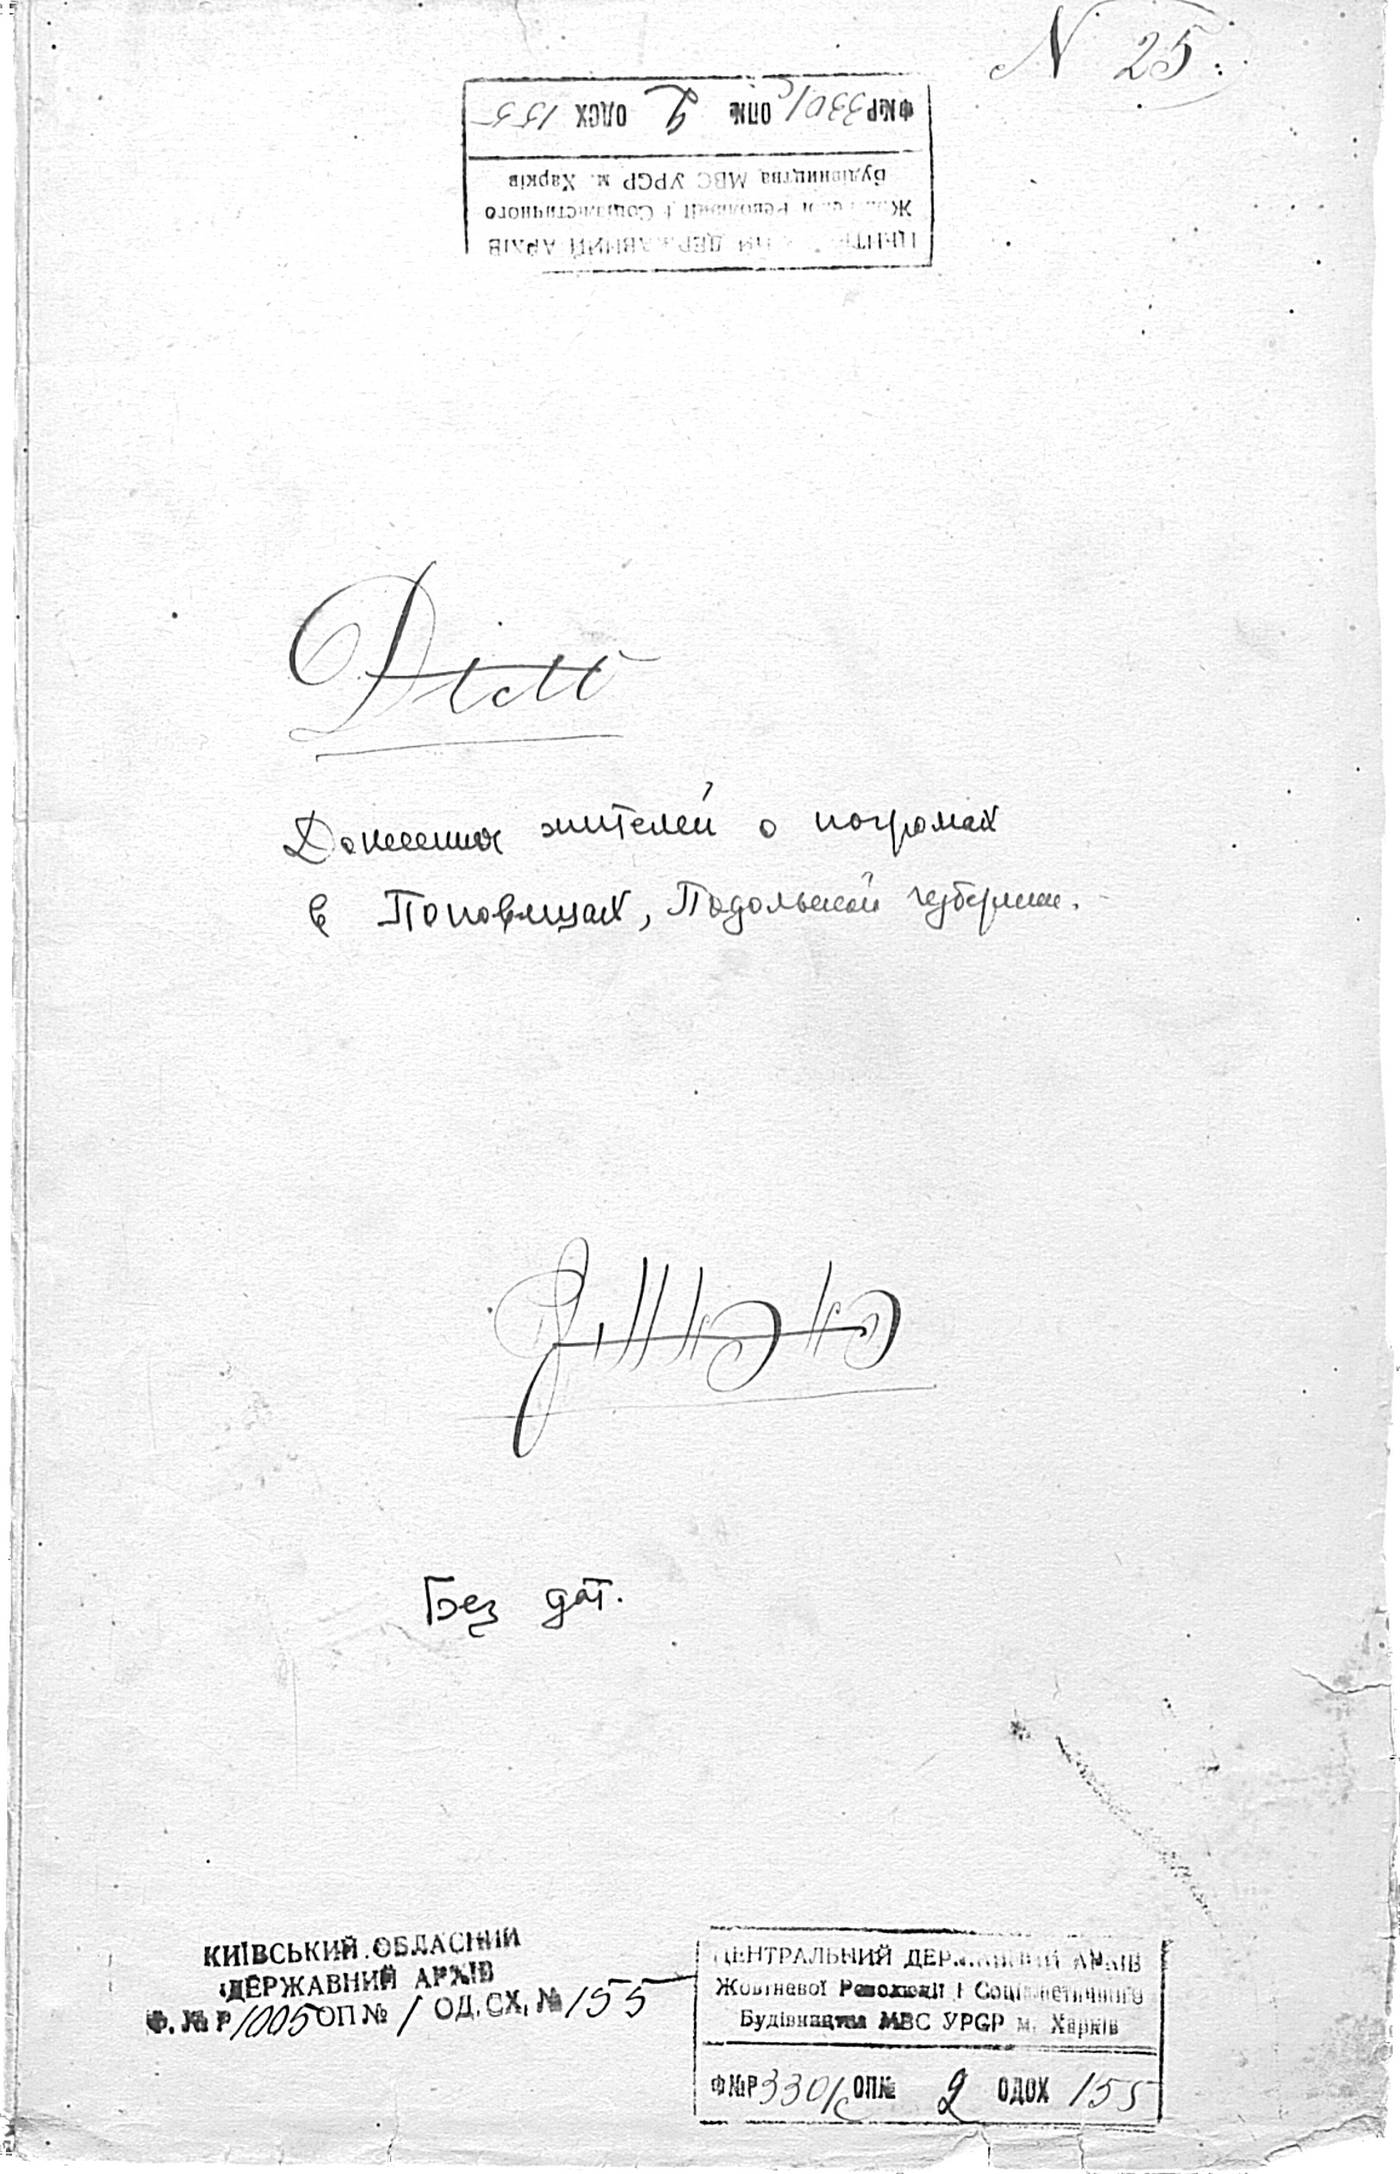 N 25.
Ф№Р 3301с ОП№ 2 ОДОХ 155
Будівництва МВС УРСР м. Харків
Жовтневої Революції і Соціалістичного
ЦЕНТРАЛЬНИЙ ДЕРЖАВНИЙ АРХІВ
Донесения жителей о погромах
в Поповцах, Подольской губернии.
Без дат.
КИЇВСЬКИЙ ОБЛАСНИЙ
ДЕРЖАВНИЙ АРХІВ
Ф. № Р 1005 ОП № 1 ОД. СХ. № 155
ЦЕНТРАЛЬНИЙ ДЕРЖАВНИЙ АРХІВ
Жовтневої Революції і Соціалістичного
Будівництва МВС УРСР м. Харків
Ф№Р 3301с ОП№ 2 ОДОХ 155